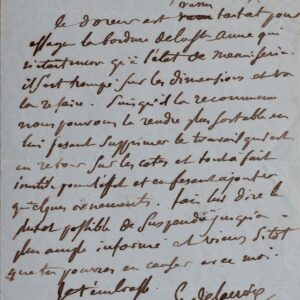 venu
le doreur est tantôt pour
essayer la bordure de la Ste Anne qui
n'était encore qu'à l'état de menuiserie
il s'est trompé sur les dimensions et va
la refaire. Puisqu'il la recommence
nous pouvons la rendre plus portable en
lui fesant supprimer le travail qui est
en retour sur les cotés et tout à fait
inutile pour l'effet et en fesant ajouter
quelques ornements. fais lui dire le
plutot possible de suspendre jusqu'à
plus ample informé et viens sitot
que tu pourras en causer avec moi.
Je t'embrasse
Eug Delacroix